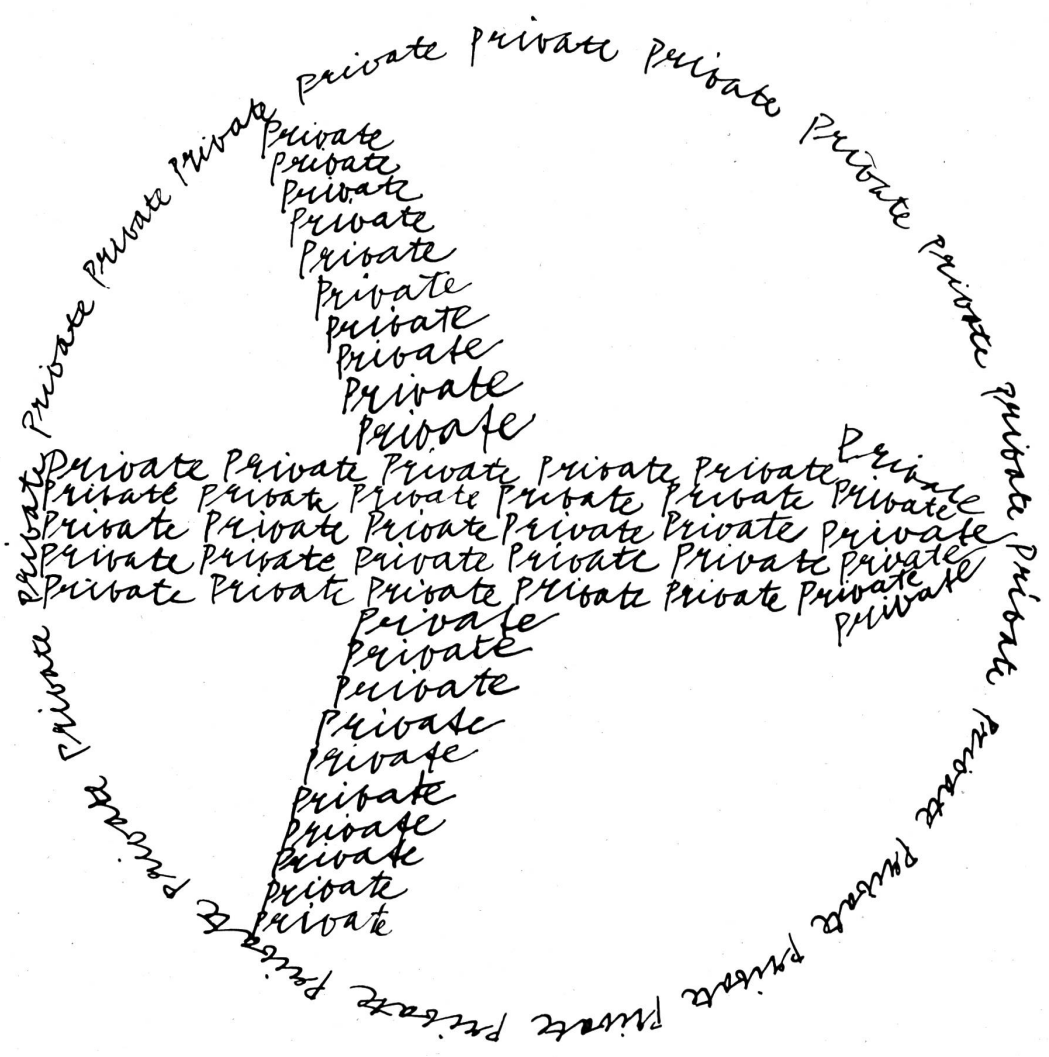 private private private private private private private private private private private private private private private private private private private private
private
private
private
private
private
private
private
private
private
private
Private Private Private Private Private Private
Private Private Private Private Private Private
Private Private Private Private Private Private
Private Private Private Private Private Private
Private Private Private Private Private Private
private
Private
Private
Private
Private
Private
Private
Private
Private
Private
Private